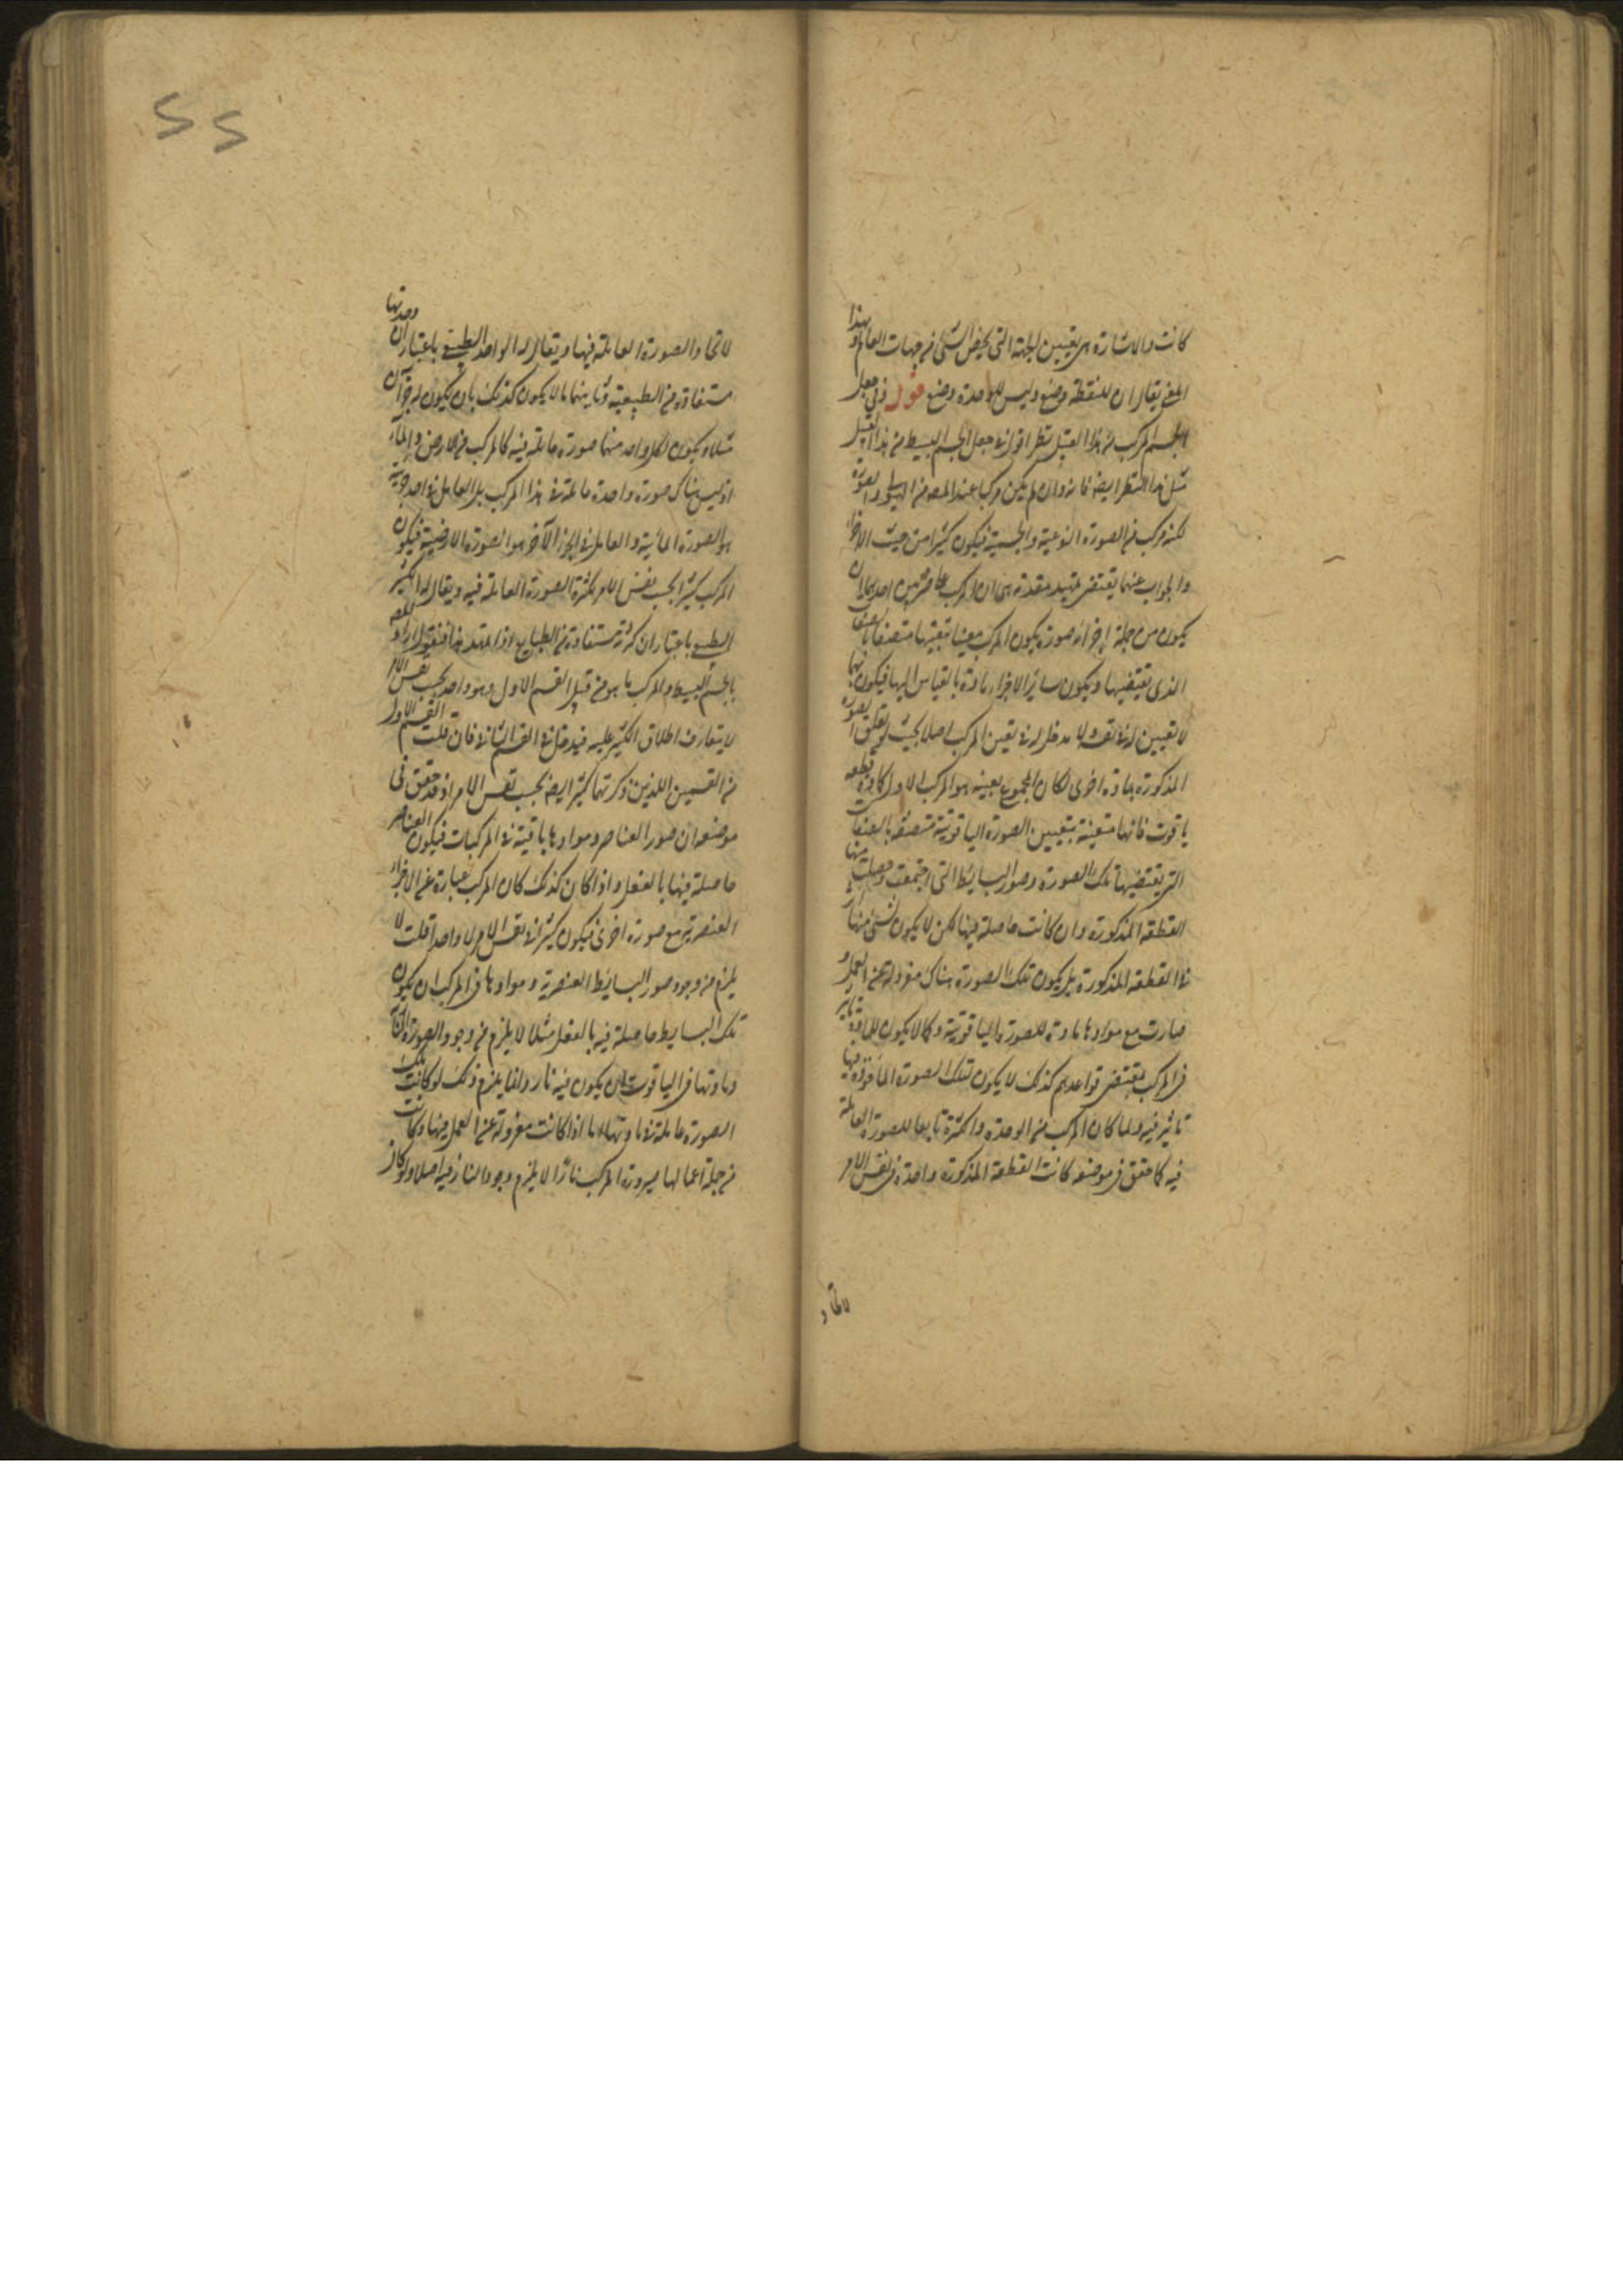 كانت والاشارة هى تعيين الجهة التى تخص الشئ من جهات العالم وبهذا
المعنى يقال ان للنقطة وضع وليس للوحدة وضع قوله وفى جعل
الجسم المركب من هذا القبيل نظر اقول فى جعل الجسم البسيط من هذا القبيل
مثل هذا النظر ايضا فانه وان لم يكن مركبا عند المصـ من الهيولى والصورة
لكنه مركب من الصورة النوعية والجسمية فيكون كثيرا من حيث الاجزاء
والجواب عنهما يقتضى تمهيد مقدمة هى ان المركب على قسمين احدهما ان
يكون من جملة اجزائه صورة يكون المركب معينا بتعينها متصفا بالصفات
الذى تقتضيها ويكون سائر الاجزاء مادة بالقياس اليها فيكون
لا تعيين له فى نفسه ولا مدخل له فى تعين المركب اصلا بحيث لو تعلق الصورة
المذكورة بمادة اخرى لكان المجموع بعينه هو المركب الاول كما فى قطعة
ياقوت فانها متعينة بتعيين الصورة الياقوتية متصفة بالصفات
التى تقتضيها تلك الصورة وصور البسائط التى اجتمعت وحصلت منها
القطعة المذكورة وان كانت حاصلة فيها لكن لا يكون لشئ منها
فى القطعة المذكورة بل يكون تلك الصورة هناك معزولة عن العمل و
صارت مع موادها مادة للصورة الياقوتية وكما لا يكون للمادة تأثير
فى المركب بمقتضى قواعدهم كذلك لا يكون لتلك الصورة المأخوذة فيها
تأثير فيه ولما كان المركب من الوحدة والكثرة تابعا للصورة العاملة
فيه كما حقق فى موضعه كانت القطعة المذكورة واحدة فى نفس الامر
لاتحاد
لاتحاد الصورة العاملة فيها ويقال له الواحد الطبيعى باعتبار ان وحدتها
مستفادة من الطبيعة وثانيهما ما لا يكون كذلك بان يكون له جزآن
مثلا ويكون لكل واحد منهما صورة عاملة فيه كالمركب من الارض والماء
اذ ليس هناك صورة واحدة عاملة فى هذا المركب بل العامل فى احد جزئيه
هو الصورة المائية والعامل فى الجزء الآخر هو الصورة الارضية فيكون
المركب كثيرا بحسب نفس الامر لكثرة الصورة العاملة فيه ويقال له الكثير
الطبيعى باعتبار ان كثرته مستفادة من الطبايع اذا تمهد هذا فنقول اراد المصـ
بالجسم البسيط والمركب ما هو من قبيل القسم الاول وهو واحد بحسب نفس الامر
لا يتعارف اطلاق الكثير عليه فيدخل فى القسم الثانى فان قلت القسم الاول
من القسمين اللذين ذكرتهما كثير ايضا بحسب نفس الامر اذ قد حقق فى
موضعه ان صور العناصر وموادها باقية فى المركبات فيكون العناصر
حاصلة فيها بالفعل واذا كان كذلك كان المركب عبارة عن الاجزاء
العنصرية مع صورة اخرى فيكون كثيرا فى نفس الامر لا واحدا قلت لا
يلزم من وجود صور البسائط العنصرية وموادها فى المركب ان يكون
تلك البسايط حاصلة فيه بالفعل مثلا لا يلزم من وجود الصورة النارية
ومادتها فى الياقوت ان يكون فيه نار وانما يلزم ذلك لو كانت تلك
الصورة عاملة فى مادتها اما اذا كانت معزولة عن العمل فيها وكانت
من جملة اعمالها صيرورة المركب نارًا لا يلزم وجود النار فيه اصلا ولو كان